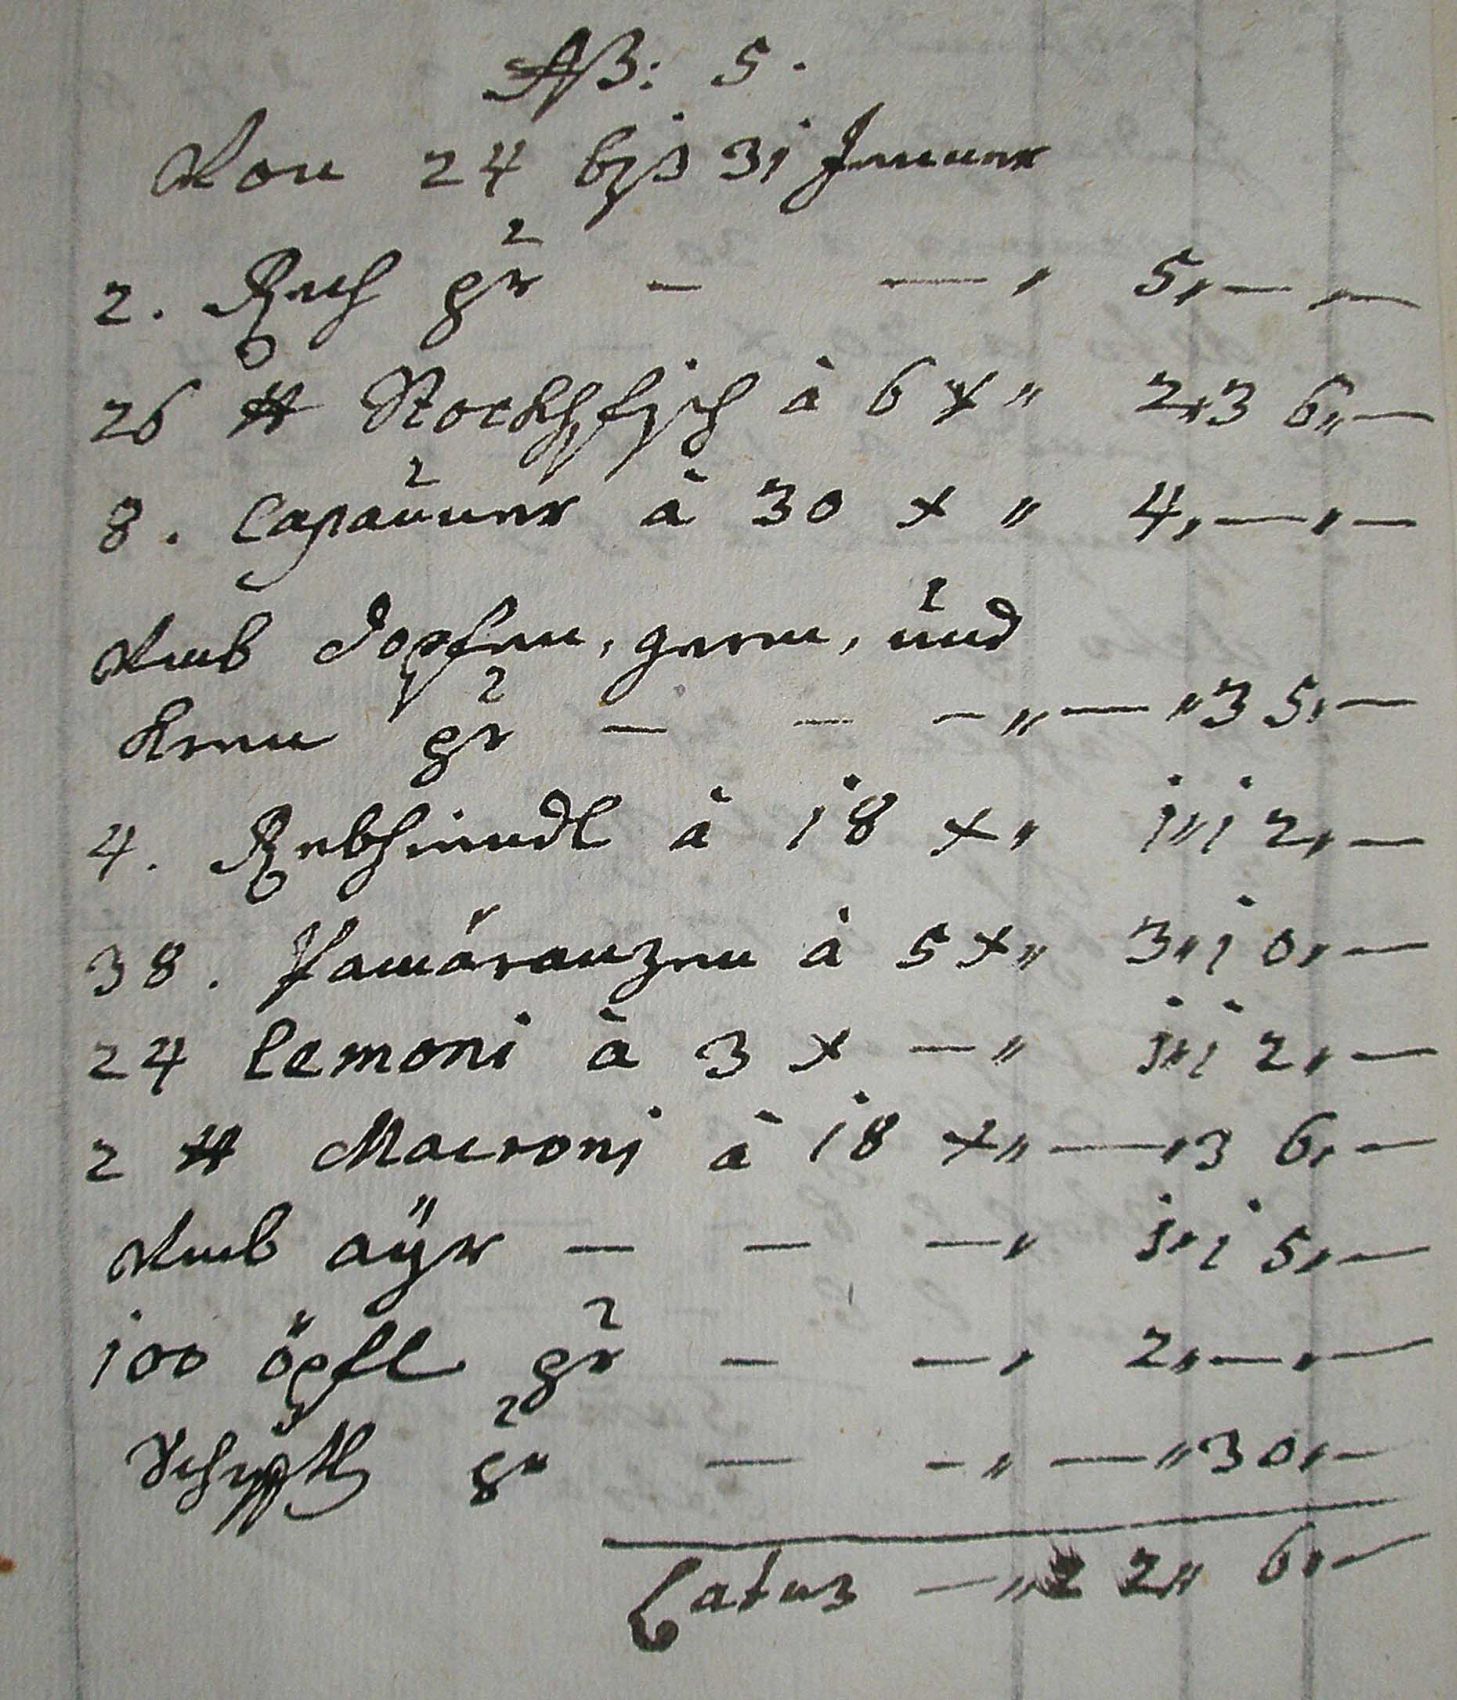 Aß: 5.
Von 24 biß 31 Jenner
2. Reh pr — — „ 5„—„—
26 ℔ Stockhfisch à 6 x „ 2„36„—
8. Capauner à 30 x „ 4„—„—
Umb Topfen, germ, und
Kren pr — — —„—„35„—
4. Rebhiendl à 18 x„ 1„12„—
38. Pamäranzen à 5 x„ 3„10„—
24 Lemoni à 3 x —„ 1„12„—
2 ℔ Macroni à 18 x„—„36„—
Umb äyr — — —„ 1„15„—
100 öpfl pr — —„ 2„—„—
pr — —„—„30„—
Latus —„22„6„—